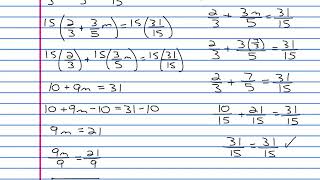 15(2/3 + 3/5 m) = 15(31/15)
15(2/3) + 15(3/5 m) = 15(31/15)
10 + 9m = 31
10 + 9m - 10 = 31 - 10
9m = 21
9m/9 = 21/9
2/3 + 3m/5 = 31/15
2/3 + 7/5 = 31/15
10/15 + 21/15 = 31/15
31/15 = 31/15 ✓